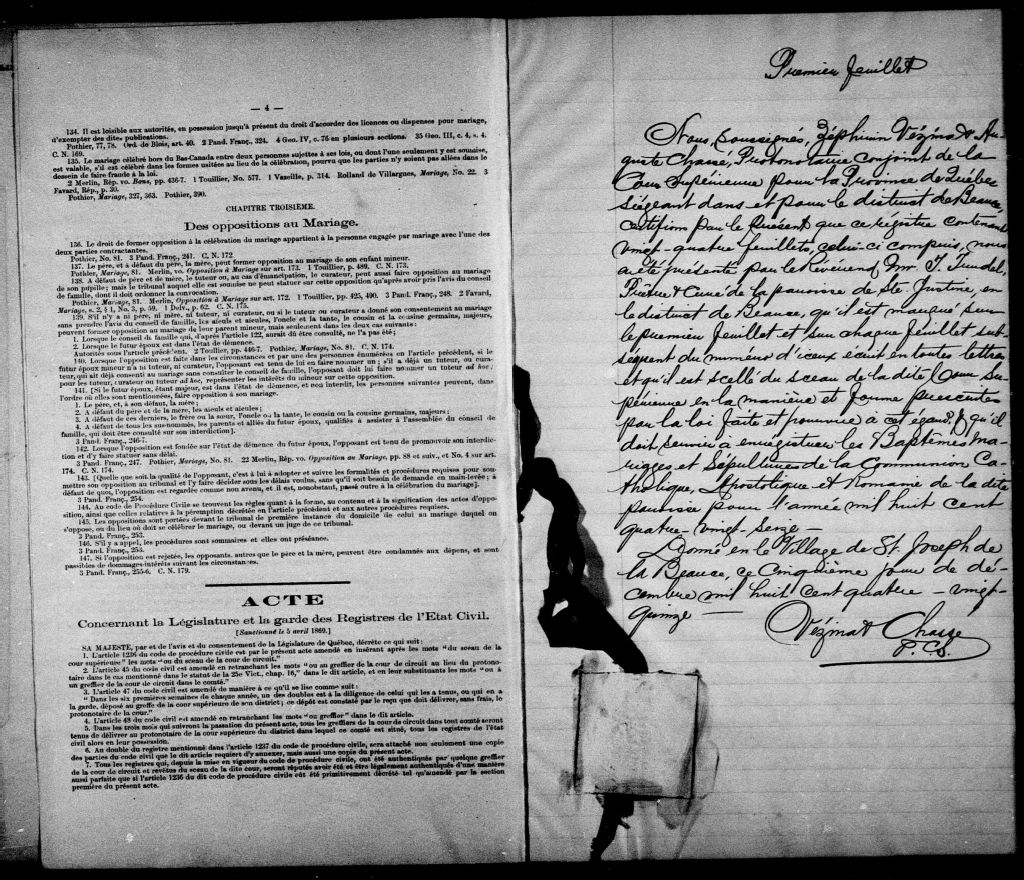 — 4 —
134. Il est loisible aux autorités, en possession jusqu'à présent du droit d'accorder des licences ou dispenses pour mariage,
d'exempter des dites publications.
Pothier, 77, 78. Ord. de Blois, art. 40. 2 Pand. Franç., 324. 4 Geo. IV, c. 75 en plusieurs sections. 35 Geo. III, c. 4, s. 4.
C. N. 169.
135. Le mariage célébré hors du Bas-Canada entre deux personnes sujettes à ses lois, ou dont l'une seulement y est soumise,
est valable, s'il est célébré dans les formes usitées au lieu de la célébration, pourvu que les parties n'y soient pas allées dans le
dessein de faire fraude à la loi.
2 Merlin, Rép. vo. Bans, pp. 436-7. 1 Touillier, No. 577. 1 Vazeille, p. 314. Rolland de Villargues, Mariage, No. 22. 3
Favard, Rép., p. 30.
Pothier, Mariage, 327, 363. Pothier, 390.
CHAPITRE TROISIÈME.
Des oppositions au Mariage.
136. Le droit de former opposition à la célébration du mariage appartient à la personne engagée par mariage avec l'une des
deux parties contractantes.
Pothier, No. 81. 3 Pand. Franç., 241. C. N. 172
137. Le père, et à défaut du père, la mère, peut former opposition au mariage de son enfant mineur.
Pothier, Mariage, 81. Merlin, vo. Opposition à Mariage sur art. 173. 1 Touillier, p. 489, C. N. 173.
138. A défaut de père et de mère, le tuteur ou, au cas d'émancipation, le curateur, peut aussi faire opposition au mariage
de son pupille; mais le tribunal auquel elle est soumise ne peut statuer sur cette opposition qu'après avoir pris l'avis du conseil
de famille, dont il doit ordonner la convocation.
Pothier, Mariage, 81. Merlin, Opposition à Mariage sur art. 172. 1 Touillier, pp. 425, 490. 3 Pand. Franç., 248. 2 Favard,
Mariage, s. 2, § 1, No. 3, p. 59. 1 Delv., p. 62. C. N. 175.
139. S'il n'y a ni père, ni mère, ni tuteur, ni curateur, ou si le tuteur ou curateur a donné son consentement au mariage
sans prendre l'avis du conseil de famille, les aïeuls et aïeules, l'oncle et la tante, le cousin et la cousine germains, majeurs,
peuvent former opposition au mariage de leur parent mineur, mais seulement dans les deux cas suivants:
1. Lorsque le conseil de famille qui, d'après l'article 122, aurait dû être consulté, ne l'a pas été.
2. Lorsque le futur époux est dans l'état de démence.
Autorités sous l'article précédent. 2 Touillier, pp. 446-7. Pothier, Mariage, No. 81. C. N. 174.
140. Lorsque l'opposition est faite dans les circonstances et par une des personnes énumérées en l'article précédent, si le
futur époux mineur n'a ni tuteur, ni curateur, l'opposant est tenu de lui en faire nommer un; s'il a déjà un tuteur, ou cura-
teur, qui ait déjà consenti au mariage sans consulter le conseil de famille, l'opposant doit lui faire nommer un tuteur ad hoc:
pour les tuteur, curateur ou tuteur ad hoc, représenter les intérêts du mineur sur cette opposition.
141. [Si le futur époux, étant majeur, est dans l'état de démence, et non interdit, les personnes suivantes peuvent, dans
l'ordre où elles sont mentionnées, faire opposition à son mariage.
1. Le père, et, à son défaut, la mère;
2. A défaut du père et de la mère, les aïeuls et aïeules;
3. A défaut de ces derniers, le frère ou la sœur, l'oncle ou la tante, le cousin ou la cousine germains, majeurs;
4. A défaut de tous les sus-nommés, les parents et alliés du futur époux, qualifiés à assister à l'assemblée du conseil de
famille, qui doit être consulté sur son interdiction].
3 Pand. Franç., 246-7.
142. Lorsque opposition est fondée sur l'état de démence du futur époux, l'opposant est tenu de promouvoir son interdic-
tion et d'y faire statuer sans délai.
3 Pand. Franç., 247. Pothier, Mariage, No. 81. 22 Merlin, Rép. vo. Opposition au Mariage, pp. 88 et suiv., et No. 4 sur art.
174. C. N. 174.
143. [Quelle que soit la qualité de l'opposant, c'est à lui à adopter et suivre les formalités et procédures requises pour sou-
mettre son opposition au tribunal et l'y faire décider sous les délais voulus, sans qu'il soit besoin de demande en main-levée; à
défaut de quoi, l'opposition est regardée comme non avenue, et il est, nonobstant, passé outre à la célébration du mariage].
3 Pand. Franç., 254.
144. Au code de Procédure Civile se trouvent les règles quant à la forme, au contenu et à la signification des actes d'oppo-
sition, ainsi que celles relatives à la péremption décrétée en l'article précédent et aux autres procédures requises.
145. Les oppositions sont portées devant le tribunal de première instance du domicile de celui au mariage duquel on
s'oppose, ou du lieu où doit se célébrer le mariage, ou devant un juge de ce tribunal.
3 Pand. Franç., 253.
146. S'il y a appel, les procédures sont sommaires et elles ont préséance.
3 Pand. Franç., 253.
147. Si l'opposition est rejetée, les opposants, autres que le père et la mère, peuvent être condamnés aux dépens, et sont
passibles de dommages-intérêts suivant les circonstances.
3 Pand. Franç., 255-6. C. N. 179.
ACTE
Concernant la Législature et la garde des Registres de l'Etat Civil.
[Sanctionné le 5 avril 1869.]
SA MAJESTE, par et de l'avis et du consentement de la Législature de Québec, décrète ce qui suit:
1. L'article 1236 du code de procédure civile est par le présent acte amendé en insérant après les mots "du sceau de la
cour supérieure" les mots "ou du sceau de la cour de circuit."
2. L'article 45 du code civil est amendé en retranchant les mots "ou au greffier de la cour de circuit au lieu du protono-
taire dans le cas mentionné dans le statut de la 25e Vict., chap. 16," dans le dit article, et en leur substituants les mots "ou à
un greffier de la cour de circuit dans le comté."
3. L'article 47 du code civil est amendé de manière à ce qu'il se lise comme suit:
"Dans les six premières semaines de chaque année, un des doubles est à la diligence de celui qui les a tenus, ou qui en a
la garde, déposé au greffe de la cour supérieure de son district; ce dépôt est constaté par le reçu que doit délivrer, sans frais, le
protonotaire de la cour."
4. L'article 48 du code civil est amendé en retranchant les mots "ou greffier" dans le dit article.
5. Dans les trois mois qui suivront la passation du présent acte, tous les greffiers de la cour de circuit dans tout comté seront
tenus de délivrer au protonotaire de la cour supérieure du district dans lequel ce comté est situé, tous les registres de l'état
civil alors en leur possession.
6. Au double du registre mentionné dans l'article 1237 du code de procédure civile, sera attaché non seulement une copie
des parties du code civil que le dit article requiert d'y annexer, mais aussi une copie du présent acte.
7. Tous les registres qui, depuis la mise en vigueur du code de procédure civile, ont été authentiqués par quelque greffier
de la cour de circuit et revêtus du sceau de la dite cour, seront réputés avoir été et être légalement authentiqués d'une manière
aussi parfaite que si l'article 1236 du dit code de procédure civile eût été primitivement décrété tel qu'amendé par la section
première du présent acte.
Premier feuillet
Nous, soussignés, Zéphirin Vézina & Au-
guste Chasse, Protonotaire conjoint de la
Cour Supérieure pour la Province de Québec
siégeant dans et pour le district de Beauce,
certifions par le Présent que ce régistre contenant
vingt-quatre feuillets, celui-ci compris, nous
a été présenté par le Révérend Mr. J. Trudel,
Prêtre & Curé de la paroisse de Ste. Justine, en
le district de Beauce, qu'il est marqué sur
le premier feuillet et sur chaque feuillet sub-
séquent du numéro d'iceux écrit en toutes lettres
et qu'il est scellé du sceau de la dite Cour Su-
périeure en la manière et forme prescrites
par la loi faite et pourvue à cet égard, & qu'il
doit servir à enregistrer les Baptêmes, Ma-
riages et Sépultures de la Communion Ca-
tholique, Apostolique et Romaine de la dite
paroisse pour l'année mil huit cent
quatre-vingt-seize —
Donné en le Village de St. Joseph de
la Beauce, ce Cinquième jour de dé-
cembre mil huit cent quatre-vingt-
quinze —
Vézina & Chasse
P. C. S.